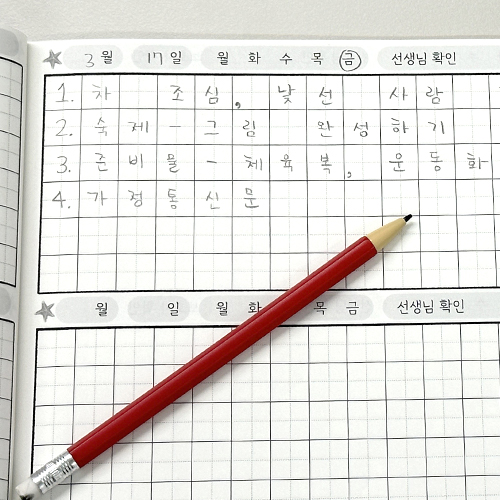 3월 17일 월 화 수 목 금 선생님 확인
1. 차 조심, 낯선 사람
2. 숙제 - 그림 완성하기
3. 준비물 - 체육복, 운동화
4. 가정통신문
월 일 월 화 목 금 선생님 확인